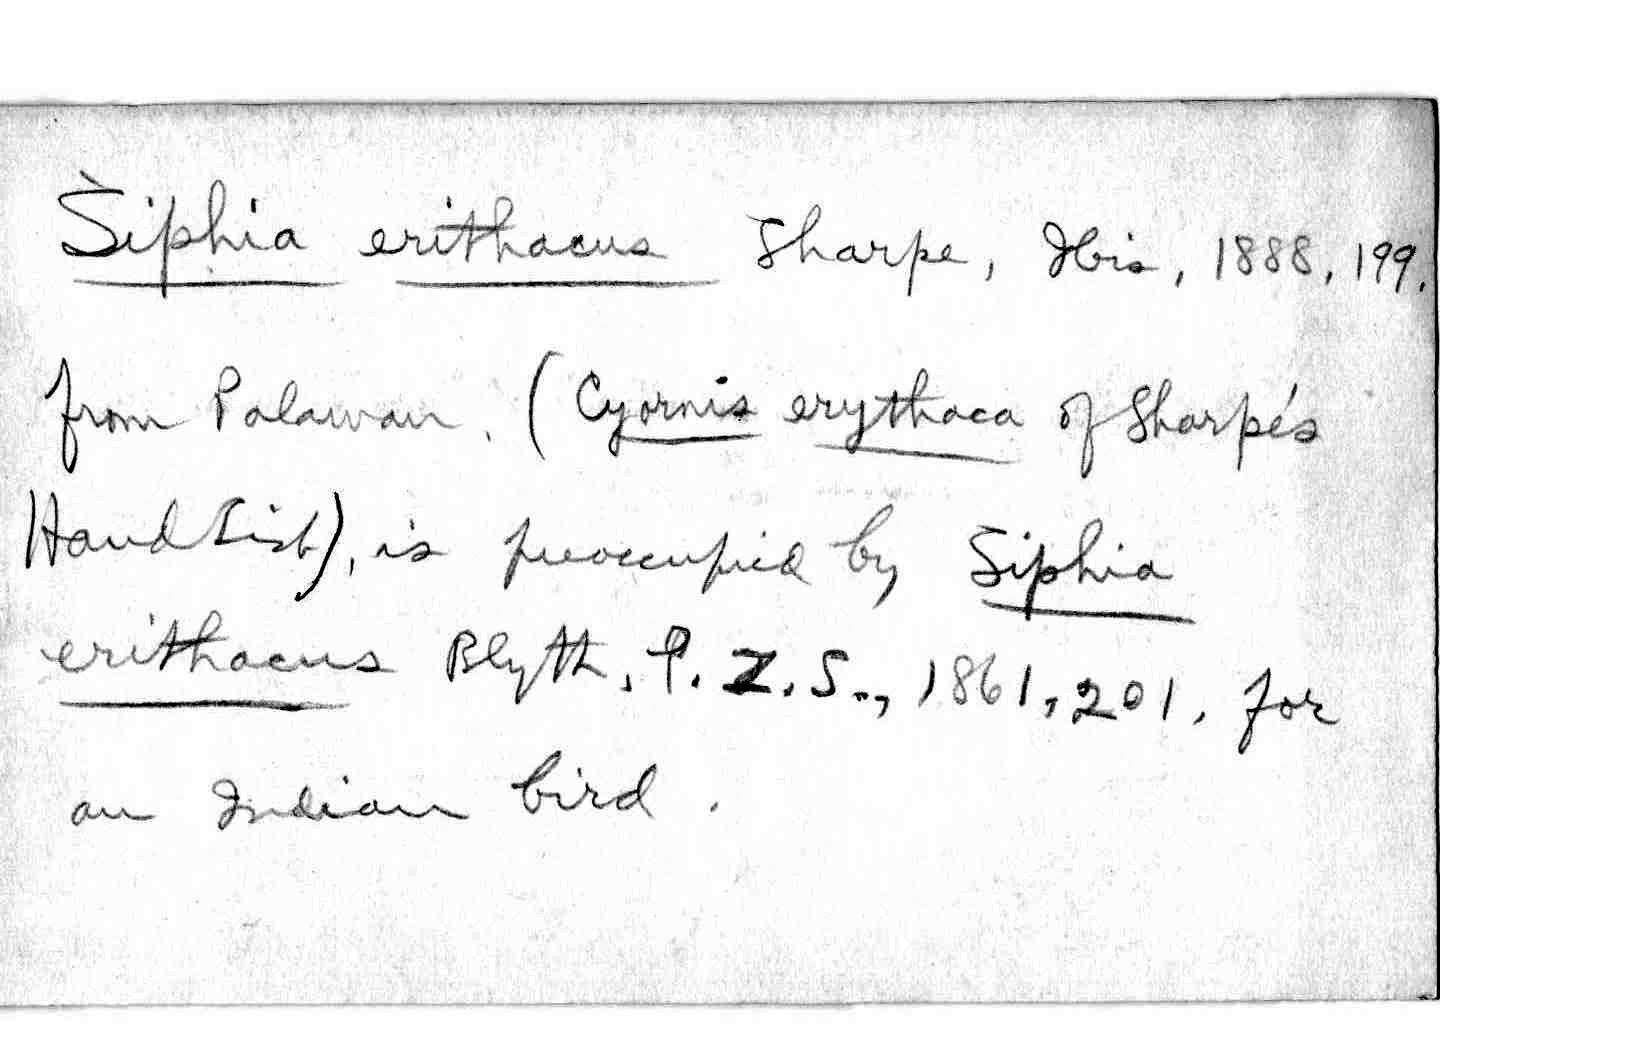 Siphia erithacus Sharpe, Ibis, 1888, 199.
from Palawan. (Cyornis erythaca of Sharpe's
Hand List), is preoccupied by Siphia
erithacus Blyth, P. Z. S., 1861, 201, for
an Indian bird.